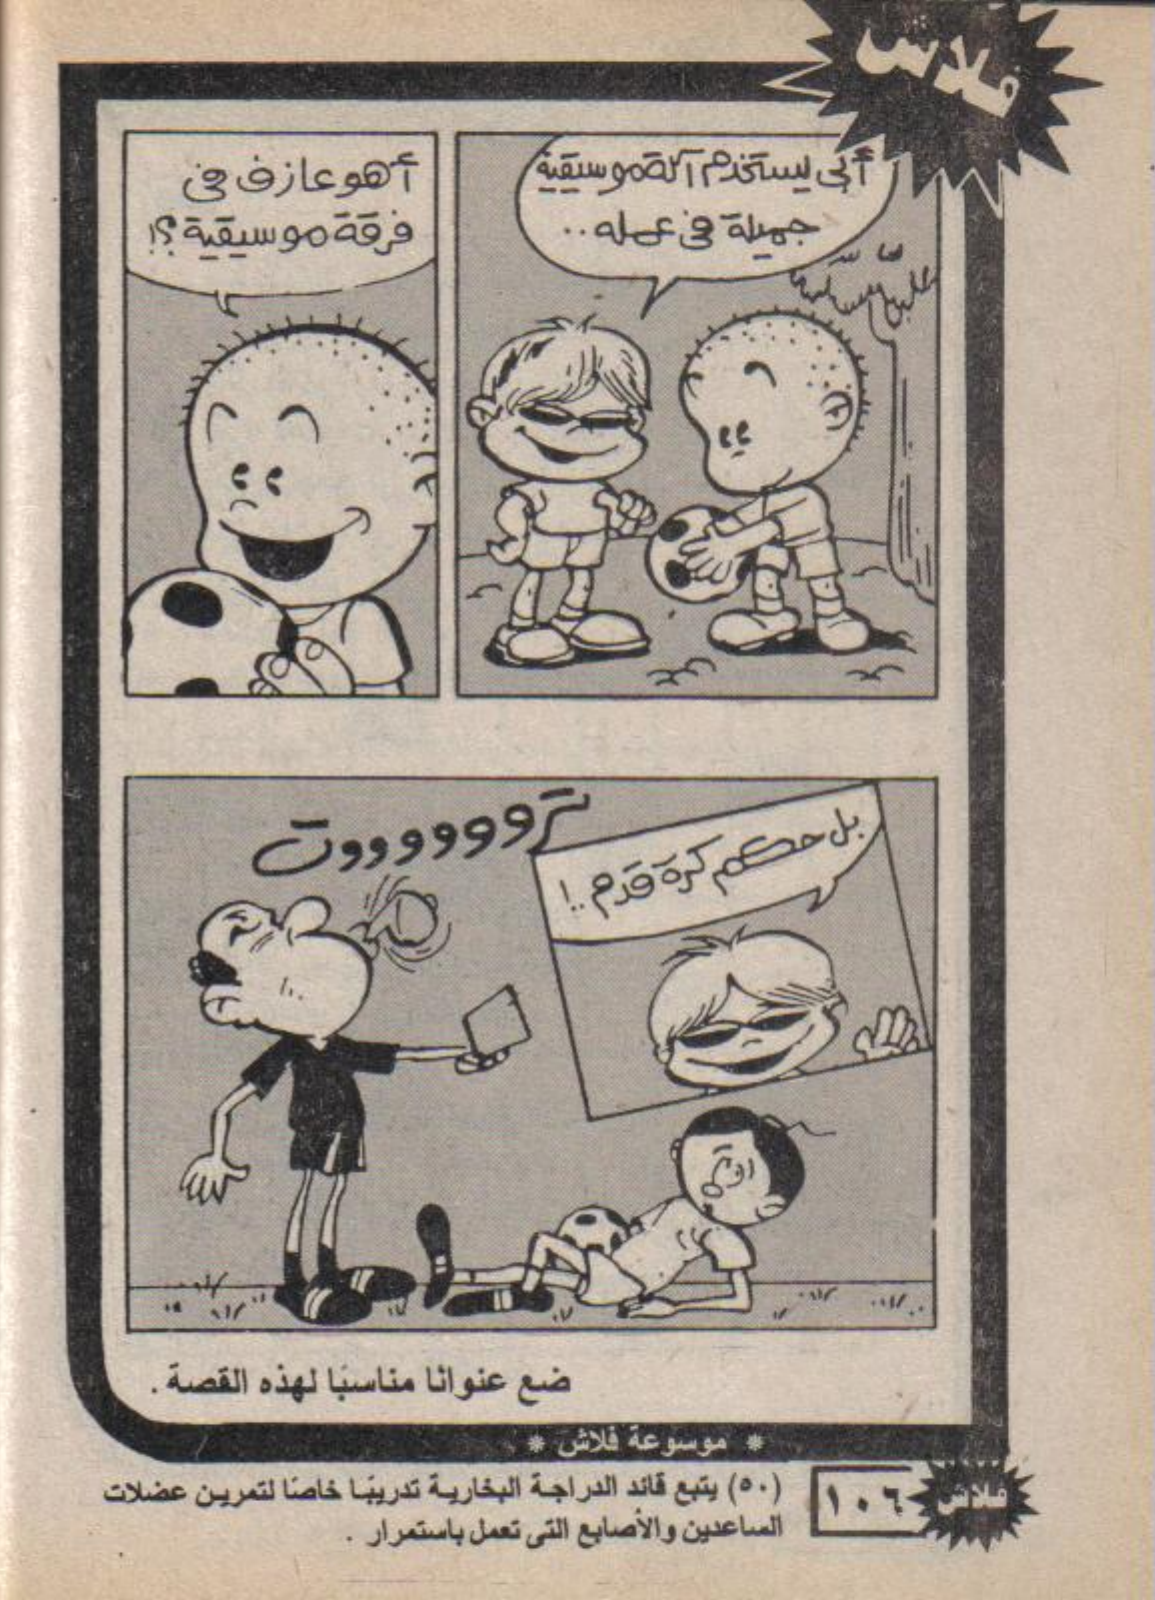 فلاش
أبى يستخدم آلة موسيقية
جميلة فى عمله..
أهو عازف فى
فرقة موسيقية ؟!
بل حكم كرة قدم ..!
تروووووووت
ضع عنوانا مناسبًا لهذه القصة .
* موسوعة فلاش *
(٥٠) يتبع قائد الدراجة البخارية تدريبًا خاصًا لتمرين عضلات
الساعدين والأصابع التى تعمل باستمرار .
١٠٦
فلاش